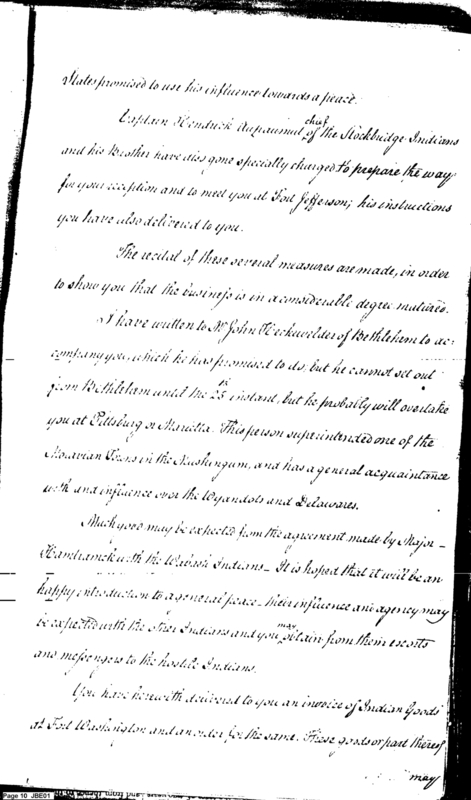 States promised to use his influence towards a peace.
Captain Hendrick Aupaumut chief of the Stockbridge Indians
and his Brother have also gone specially charged to prepare the way
for your reception and to meet you at Fort Jefferson; his instructions
you have also delivered to you.
The recital of these several measures are made, in order
to show you that the business is in a considerable degree matured.
I have written to Mr John Heckewelder of Bethlehem to ac:
company you, which he has promised to do, but he cannot set out
from Bethlehem until the 25th instant, but he probably will overtake
you at Pittsburg or Marietta. This person superintended one of the
Moravian Towns in the Muskingum, and has a general acquaintance
with and influence over the Wyandots and Delawares.
Much good may be expected from the agreement made by Major
Hamtramck with the Wabash Indians_ It is hoped that it will be an
happy introduction to a general peace_ their influence and agency may
be expected with the other Indians and you may obtain from them escorts
and messengers to the hostile Indians.
You have herewith delivered to you an invoice of Indian Goods
at Fort Washington and an order for the same. These goods or part thereof
may
Page 10 JBE01